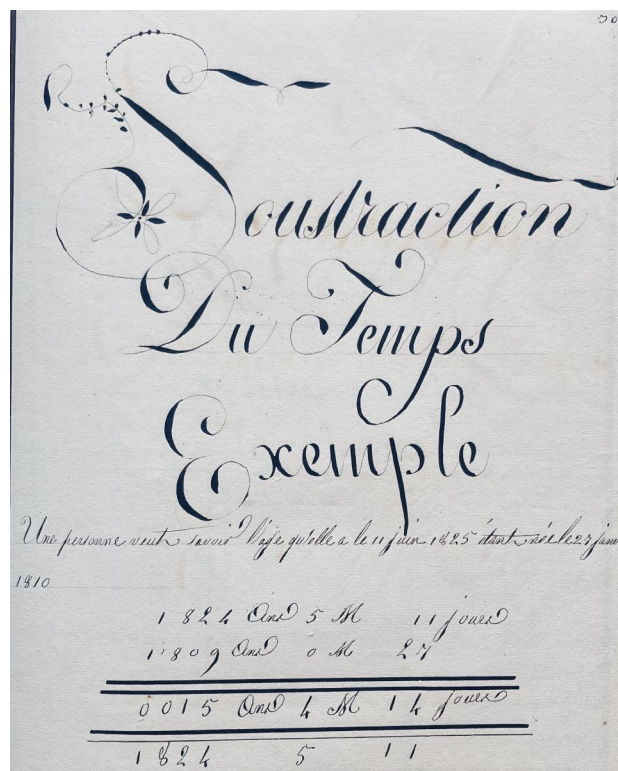 30
Soustraction
Du Temps
Exemple
Une personne veut savoir l'age qu'elle a le 11 juin 1825 étant née le 27 janv
1810
1824 Ans 5 M 11 jours
1809 Ans 0 M 27
0015 Ans 4 M 14 jours
1824 5 11